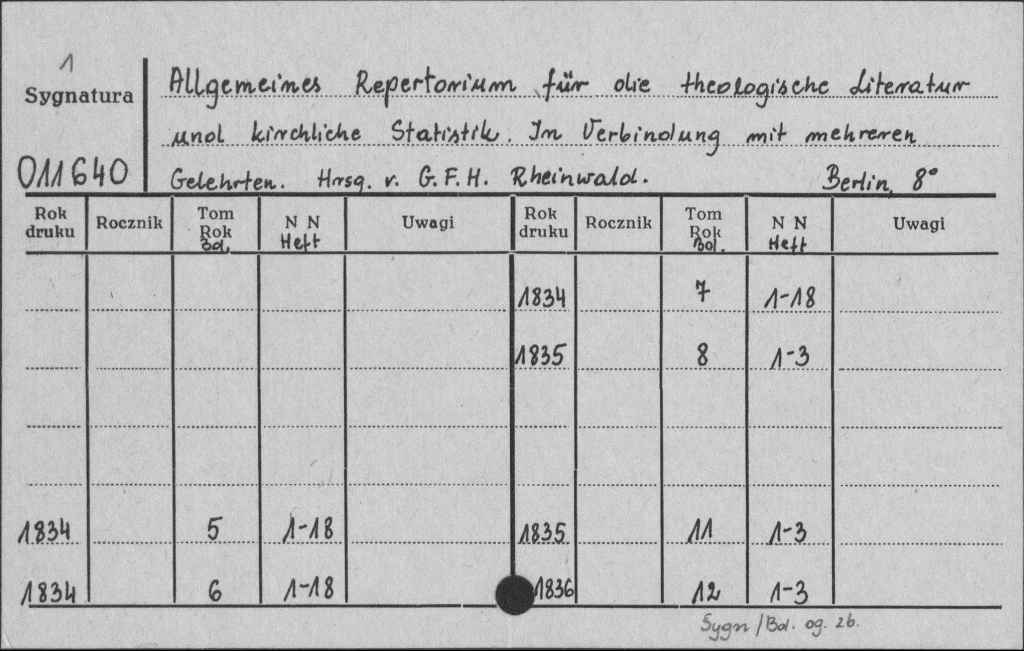 1
Sygnatura
011640
Allgemeines Repertorium für die theologische Literatur
und kirchliche Statistik. In Verbindung mit mehreren
Gelehrten. Hrsg. v. G.F.H. Rheinwald. Berlin, 8°
Rok druku Rocznik Tom Rok Bd. N N Heft Uwagi Rok druku Rocznik Tom Rok Bd. N N Heft Uwagi
1834 7 1-18
1835 8 1-3
1834 5 1-18 1835 11 1-3
1834 6 1-18 1836 12 1-3
Sygn/Bd. og. 26.